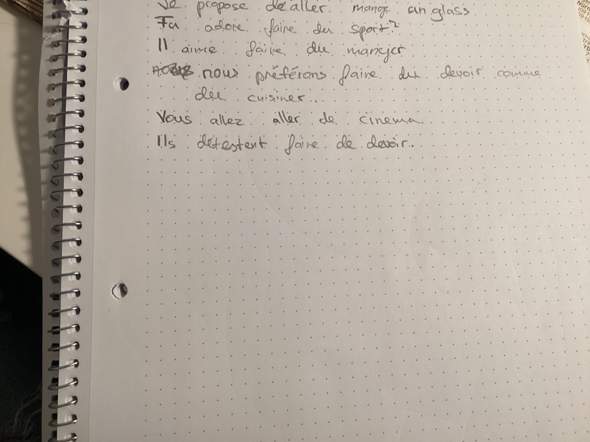 Je propose de aller mange un glass
Tu adore faire du sport?
Il aime faire du manger
nous préférons faire du devoir comme
deu cuisiner..
Vous allez aller de cinema
Ils detestent faire de devoir..